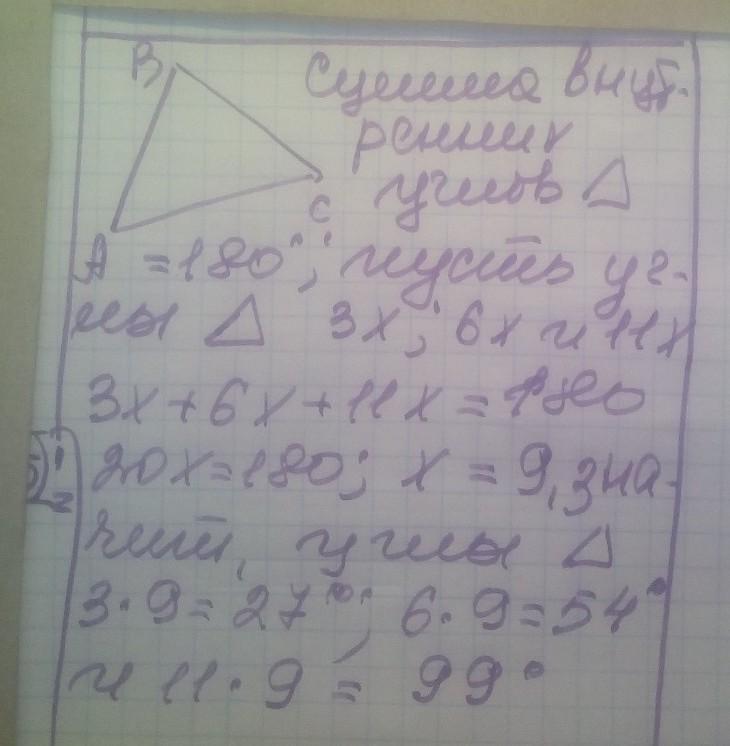 B Сумма внут-
ренних
C углов △
A =180°; пусть уг-
лы △ 3x; 6x и 11x
3x+6x+11x=180
20x=180; x=9, зна-
чит, углы △
3·9=27°; 6·9=54°
и 11·9=99°